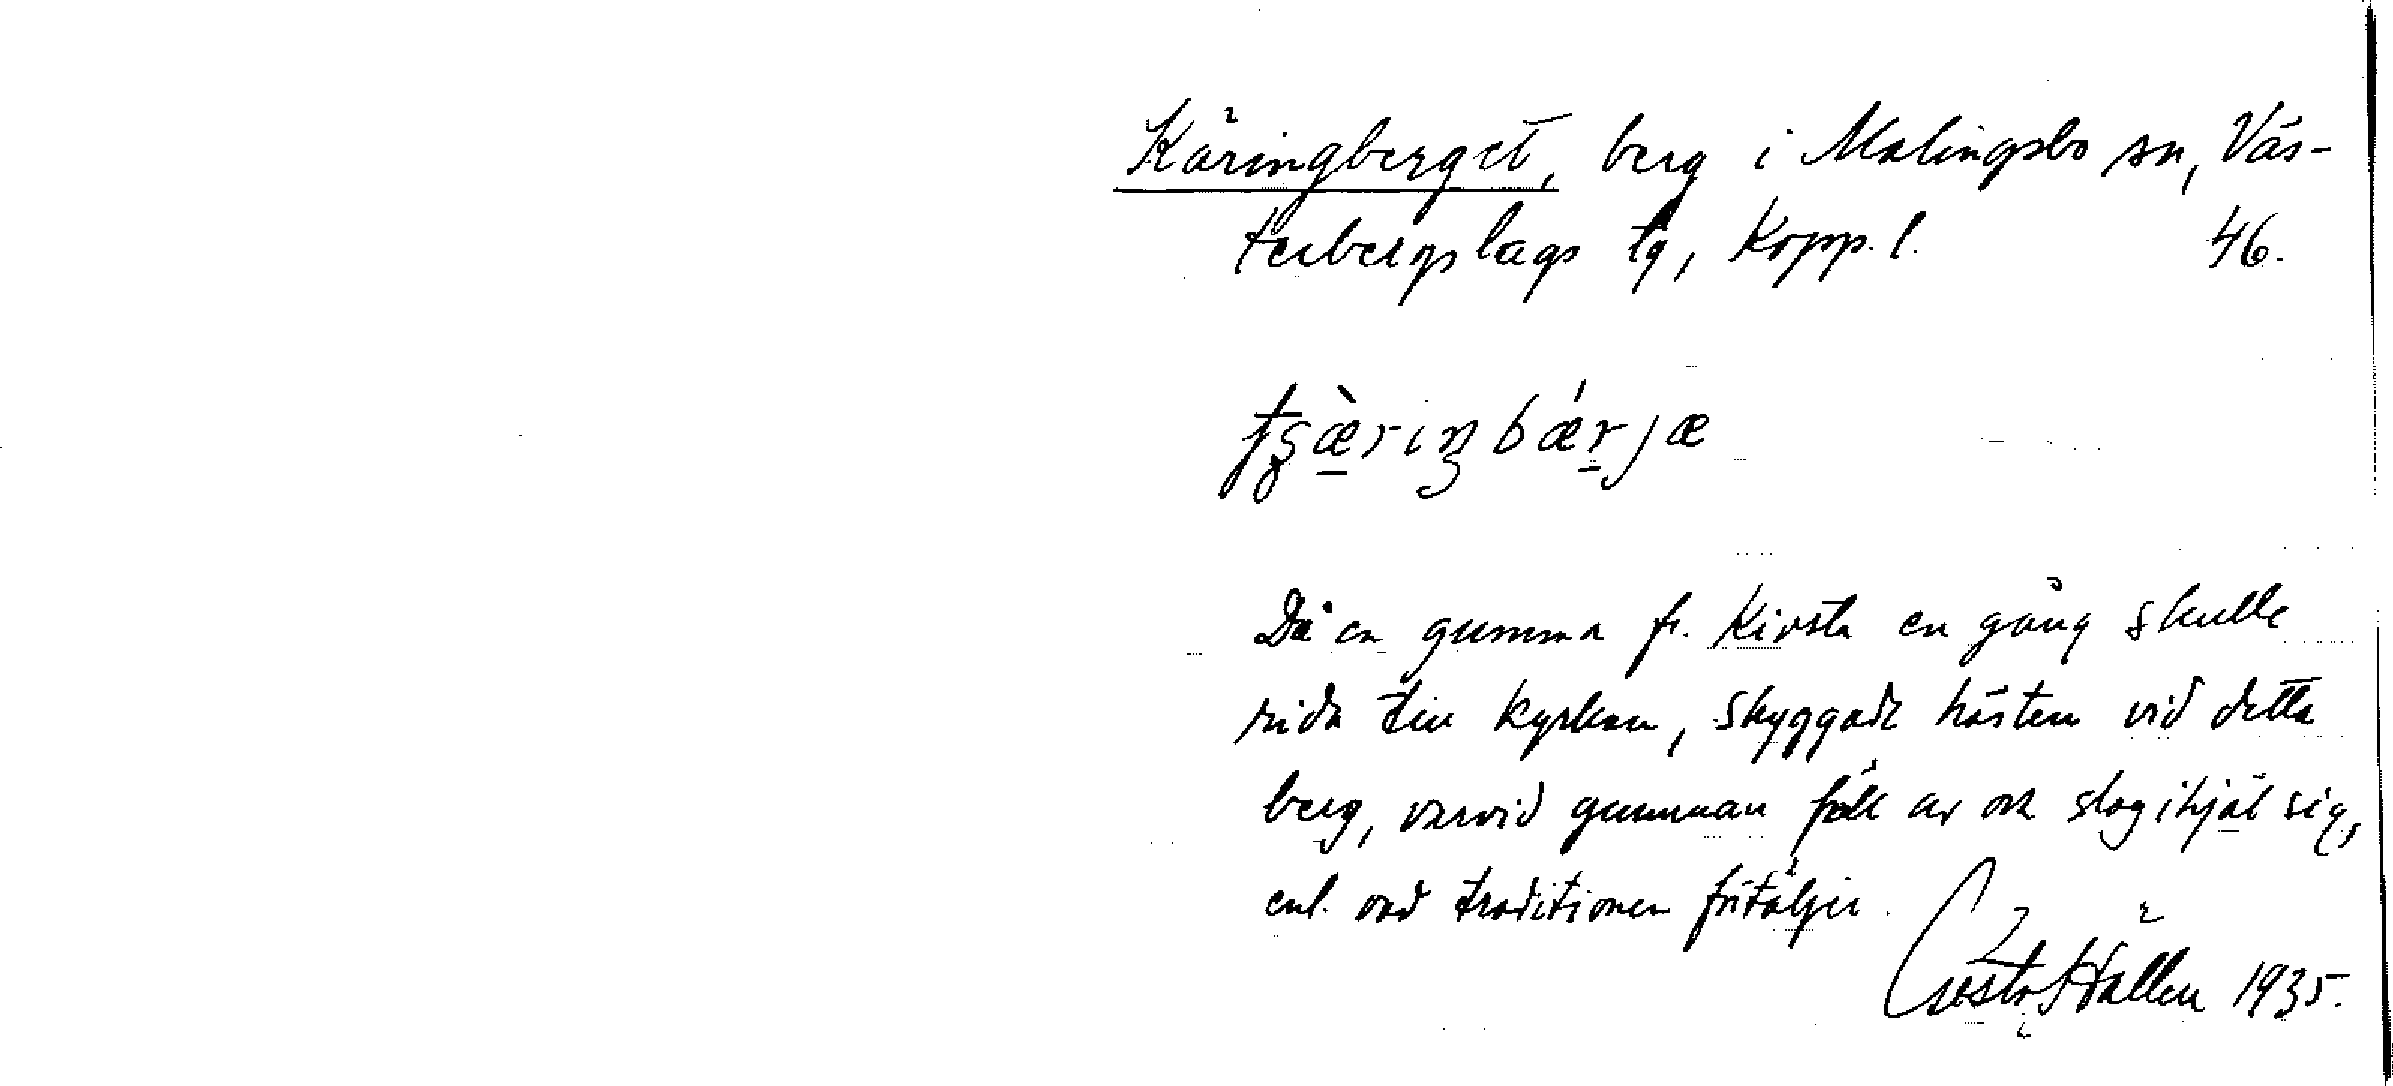 Käringberget, berg i Malingsbo sn, Väs-
terbergslags tg, Kopp. l. 46.
Då en gumma fr. Kirsta en gång skulle
rida till kyrkan, skyggade hästen vid detta
berg, varvid gumman föll av och slog ihjäl sig,
enl. vad traditionen förtäljer.
Gösta Hällen 1935.